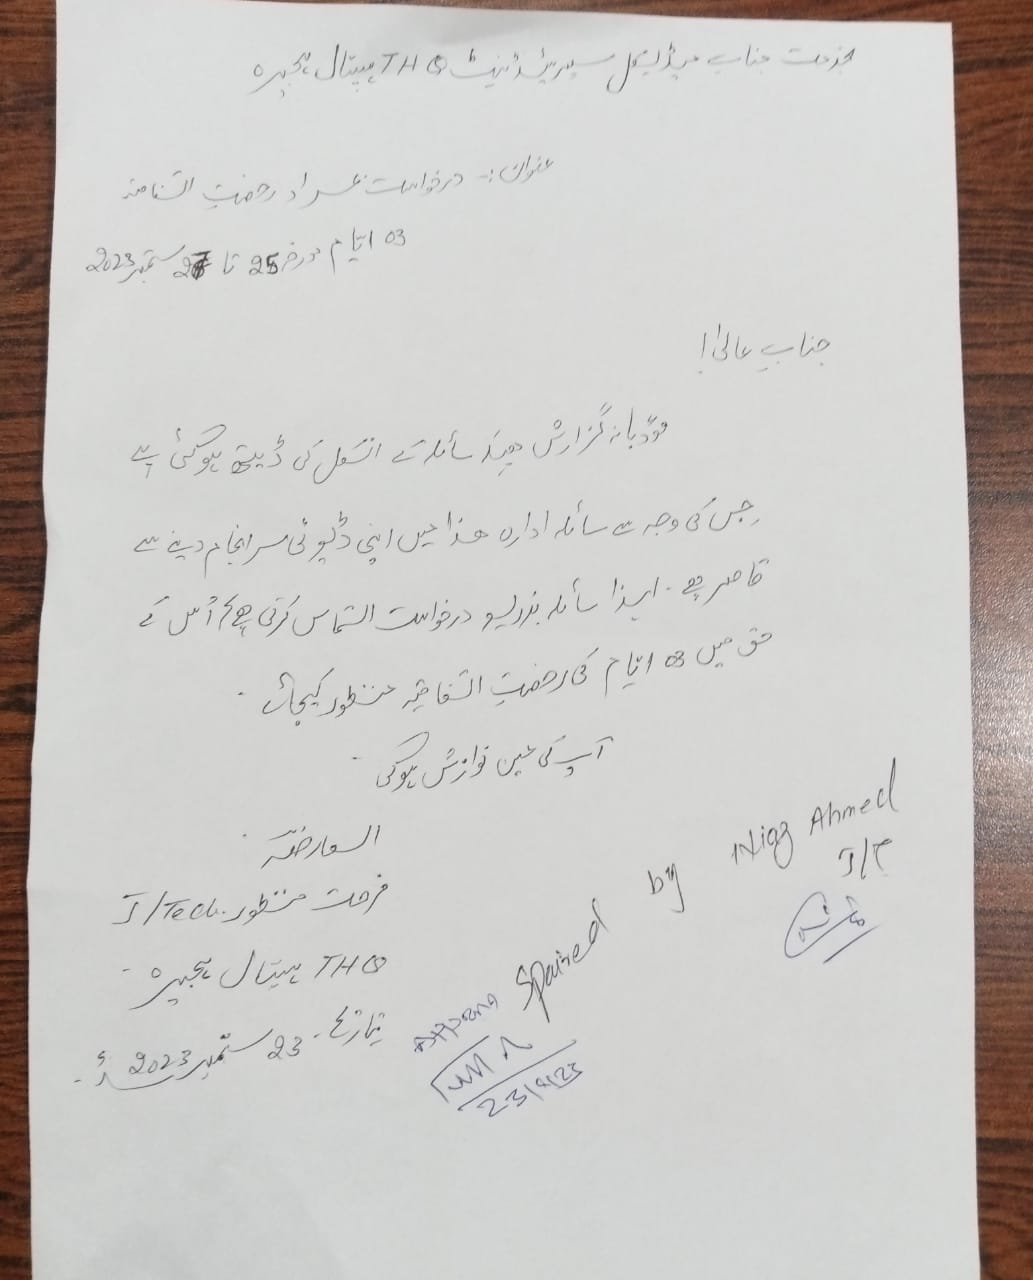 بخدمت جناب میڈیکل سپریٹنڈینٹ THQ ہسپتال ہجیرہ
عنوان:- درخواست بمراد رخصتِ اتفاقیہ
03 ایّام مورخہ 25 تا 27 ستمبر 2023
جنابِ عالیٰ!
مؤدبانہ گزارش ھیکہ سائلہ کے انکل کی ڈیتھ ہوگئی ہے
جس کی وجہ سے سائلہ ادارہ ھذا میں اپنی ڈیوٹی سرانجام دینے سے
قاصر ہے۔ لہذا سائلہ بذریعہ درخواست التماس کرتی ہے کہ اُس کے
حق میں 03 ایّام کی رخصتِ اتفاقیہ منظور کیجائے۔
آپ کی عین نوازش ہوگی
العارضہ
فرحت منظور J/Tech.
THQ ہسپتال ہجیرہ۔
تاریخ۔ 23 ستمبر 2023ء۔
Spaired by Niaz Ahmed
J/T
23/9/23